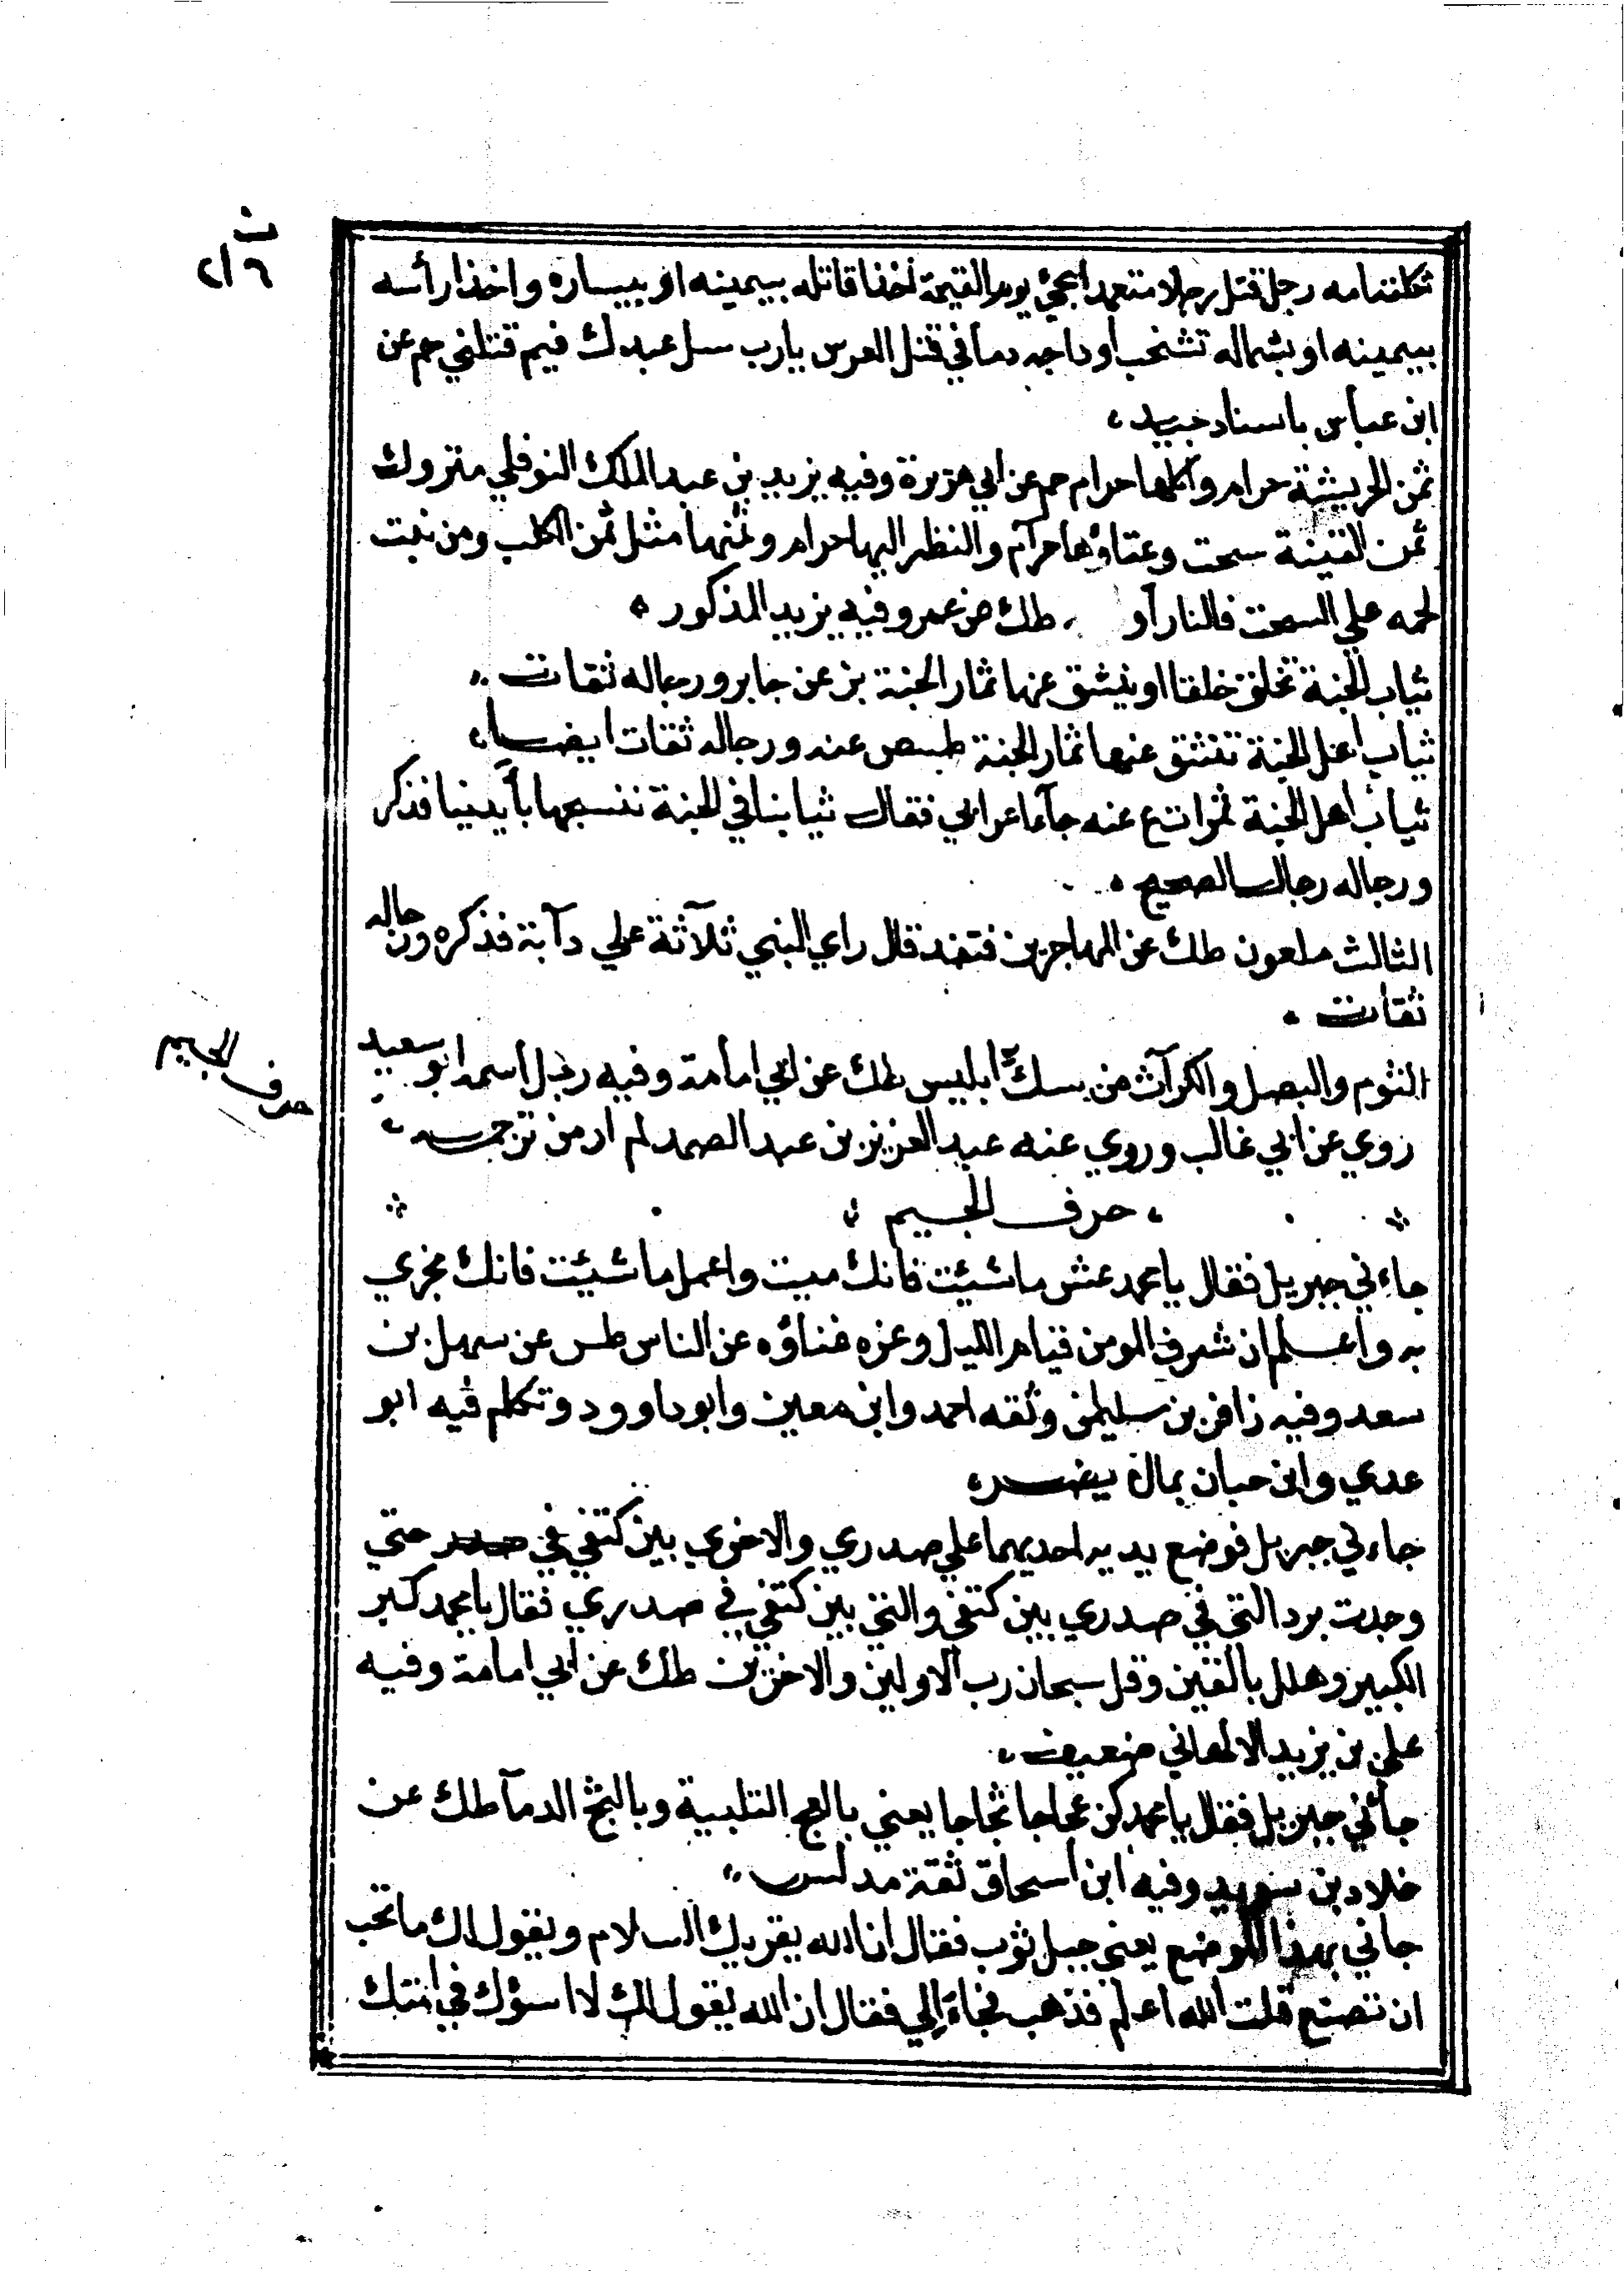 ت
٢١٦
ثكلته امه رجل قتل رجلا متعمدا يجئ يوم القيمة اخذا قاتله بيمينه او بيساره واخذا رأسه
بيمينه او بشماله تشخب اوداجه دما في قتل العرس يارب سل عبدك فيم قتلني حم عن
ابن عباس باسناد جيد
ثمن الحريشة حرام واكلها حرام حم عن ابي هريرة وفيه يزيد بن عبد الملك النوفلي متروك
ثمن القينة سحت وغناؤها حرام والنظر اليها حرام وثمنها مثل ثمن الكلب ومن نبت
لحمه علي السحت فالنار او طك عن عمر وفيه يزيد المذكور
ثياب الجنة تخلق خلقا او ينشق عنها ثمار الجنة بز عن جابر ورجاله ثقات
ثياب اهل الجنة تنشق عنها ثمار الجنة طسص عنه ورجاله ثقات ايضا
ثياب اهل الجنة ثمرات ع عنه جآء اعرابي فقال ثيابنا في الجنة ننسجها بأيدينا فذكر
ورجاله رجال الصحيح
الثالث ملعون طك عن المهاجر بن قنفد قال راي النبي ثلاثة علي دآبة فذكره ورجاله
ثقات
الثوم والبصل والكرآث من سك ابليس طك عن ابي امامة وفيه رجل اسمه ابو سعيد
روي عن ابي غالب وروي عنه عبد العزيز بن عبد الصمد لم ار من ترجمه
حرف الجيم
حرف الجيم
جاءني جبريل فقال يا محمد عش ما شيئت فانك ميت واعمل ما شيئت فانك مجزي
به واعلم ان شرف المومن قيام الليل وعزه غناؤه عن الناس طس عن سهل بن
سعد وفيه زافر بن سليمن وثقه احمد وابن معين وابو داوود وتكلم فيه ابو
عدي وابن حبان بما لا يضره
جاءني جبريل فوضع يديه احديهما علي صدري والاخري بين كتفي في صدر حتي
وجدت برد التي في صدري بين كتفي والتي بين كتفي في صدري فقال يا محمد كبر
الكبير وهلل بالقين وقل سبحان رب الاولين والاخرين طك عن ابي امامة وفيه
علي بن يزيد الالهاني ضعيف
جأني جبريل فقال يا محمد كن عجاجا ثجاجا يعني بالعج التلبية وبالثج الدمآ طك عن
خلاد بن سويد وفيه ابن اسحاق ثقة مدلس
جاني بهذا الموضع يعني جبل ثوب فقال ان الله يقريك السلام ويقول لك ما تحب
ان نصنع قلت الله اعلم فذهب فجاء الي فقال ان الله يقول لك لا اسؤك في امتك